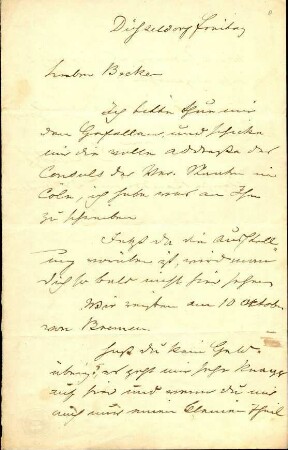 Düsseldorf Freitag
Lieber Becker
Ich bitte thue mir
den Gefallen, und schicke
mir die volle Addresse des
Consuls der Ver. Staaten in
Cöln, ich habe was an Ihn
zu schreiben
Jetzt da die Ausstell
ung vorüber ist, wird man
dich so bald nicht hier sehen
Wir reisen am 10 Oktober
von Bremen
Hast du kein Geld
übrig? es geht mir sehr knapp
auf hier und wenn du mir
auch nur einen kleinen Theil